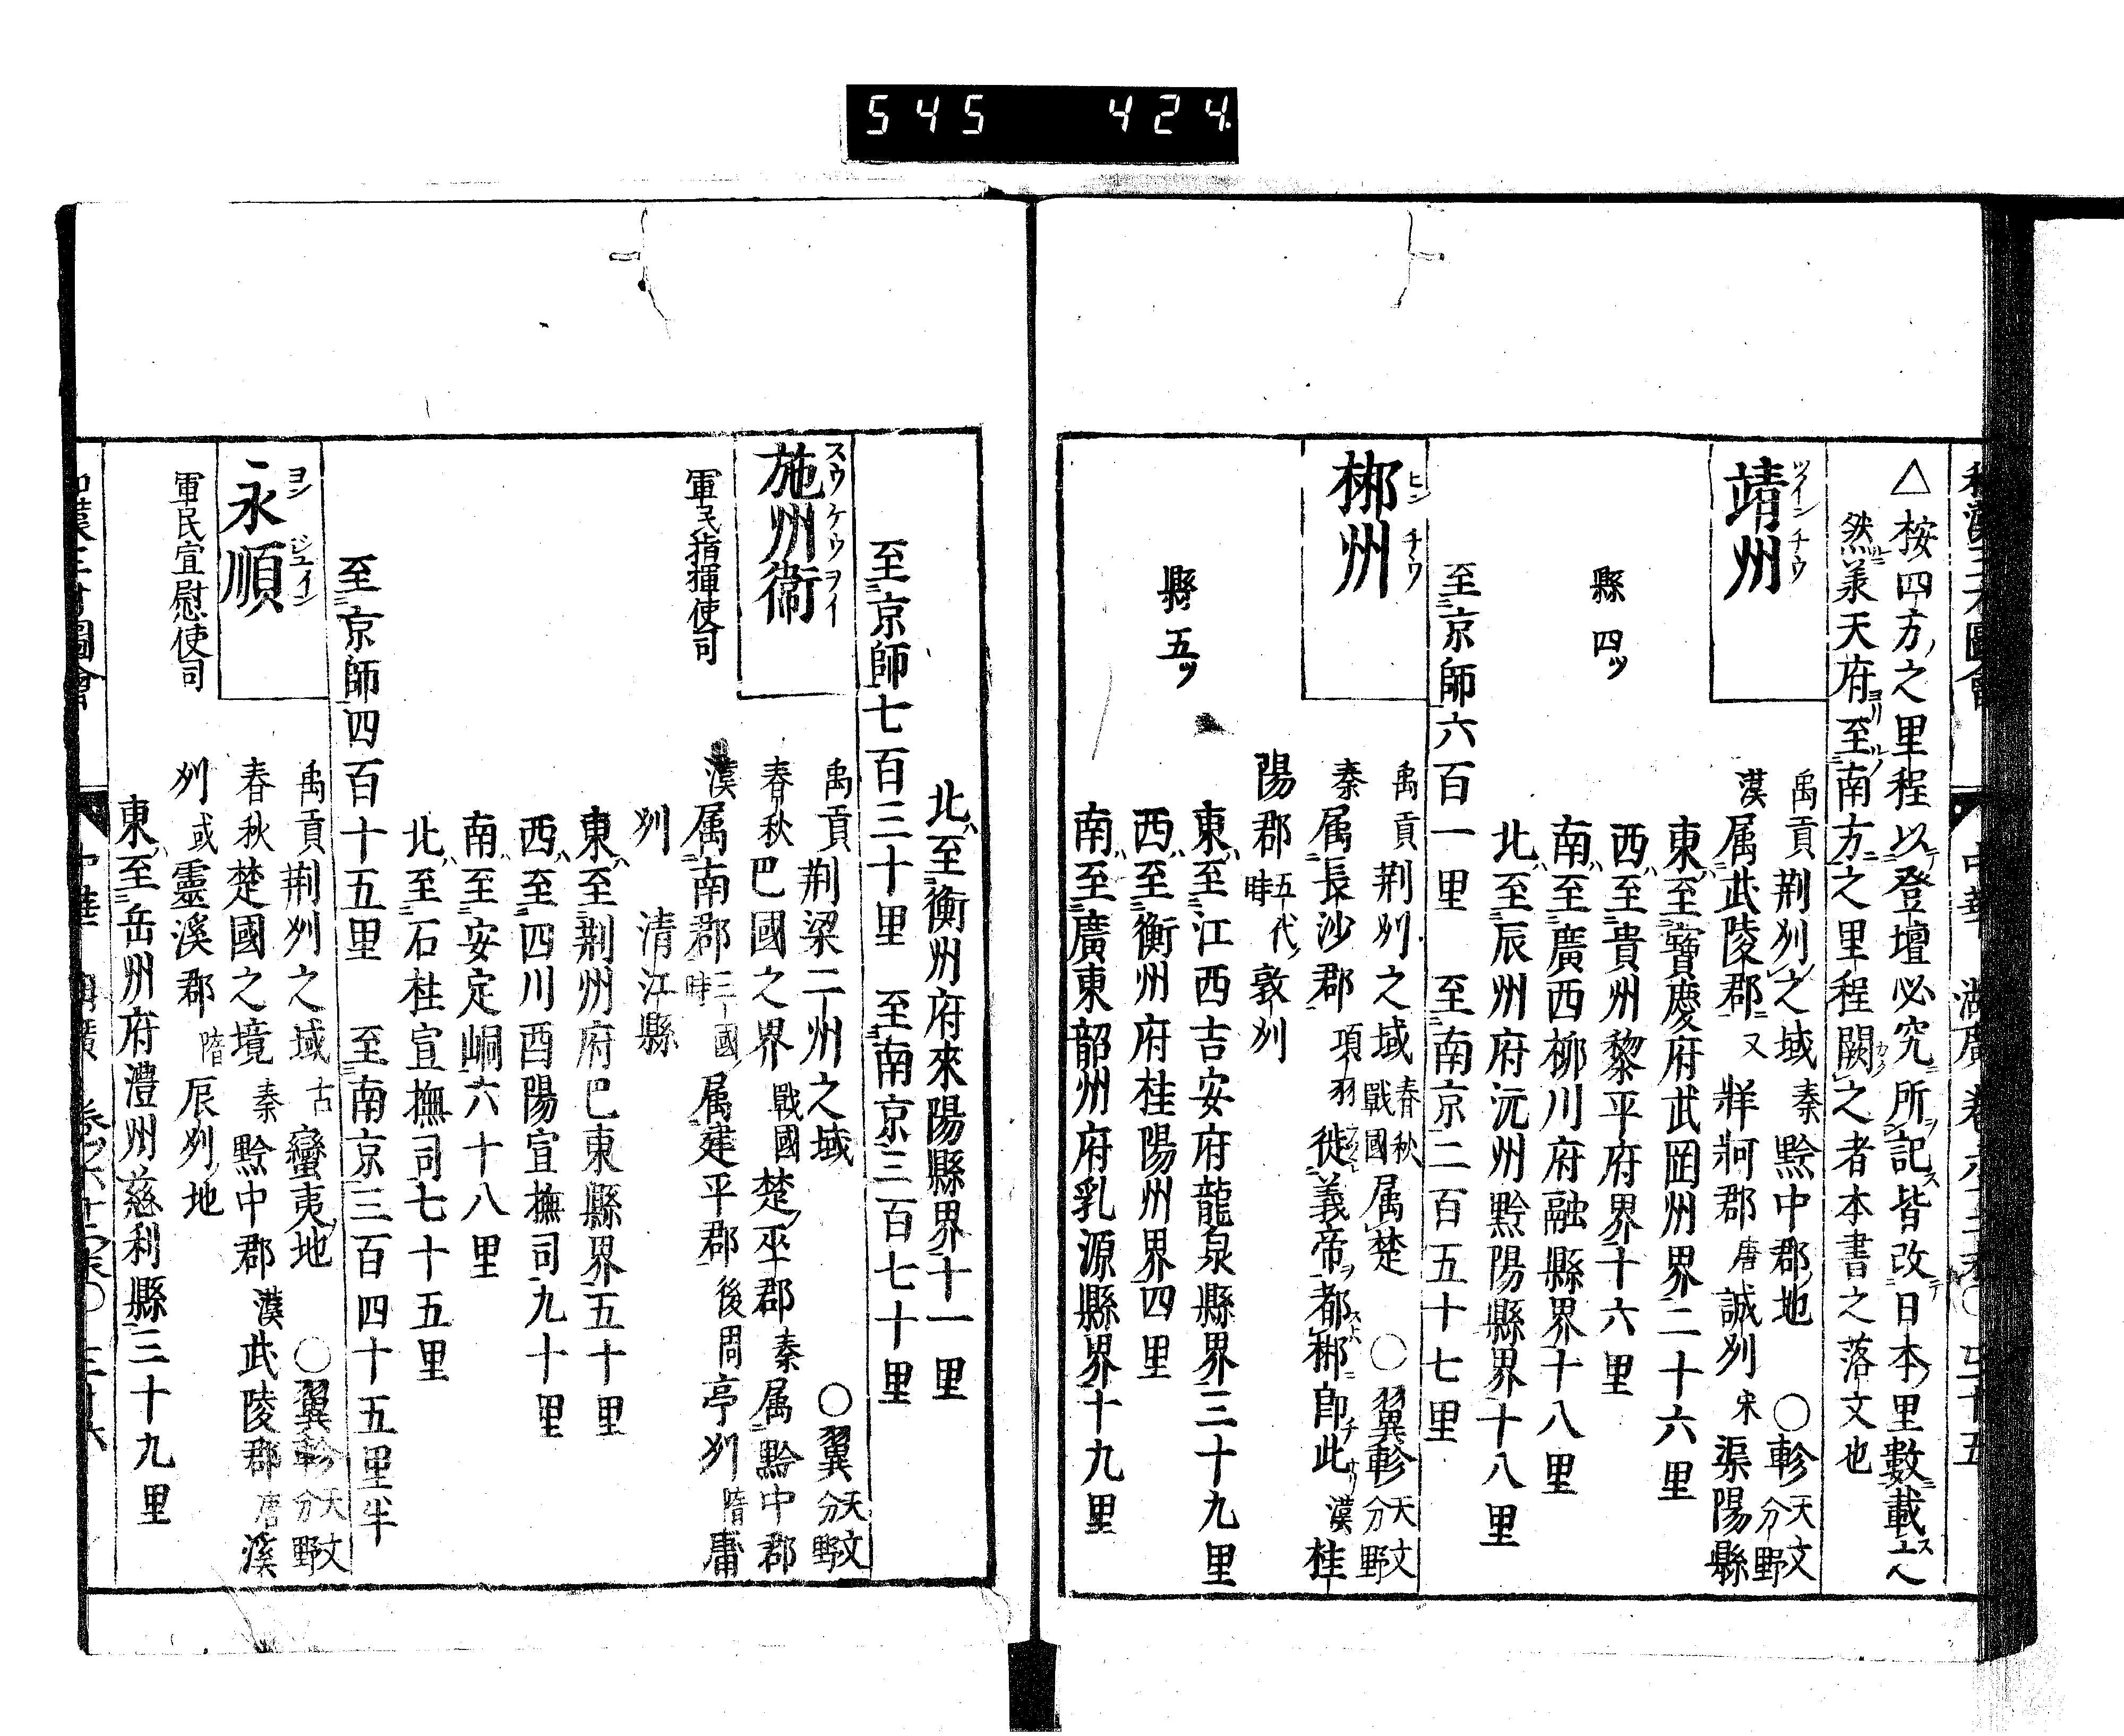 545 424
△按四方ノ之里程以登壇必究所記皆改日本ノ里數載ス
然兼天府ヨリ至南方ニ之里程闕之者本書之落文也
靖州 ツイン チウ
縣四ツ
禹貢荆州之域秦黔中郡ノ地 〇軫天文分野
漢属武陵郡又牂牁郡唐誠州宋渠陽縣
東ハ至寶慶府武岡州界二十六里
西ハ至貴州黎平府界十六里
南ハ至廣西柳川府融縣界十八里
北ハ至辰州府沅州黔陽縣界十八里
至京師六百一里 至南京二百五十七里
郴州 ヒン チウ
縣五ツ
禹貢荆州之域春秋戰國属楚 〇翼軫天文分野
秦属長沙郡項羽徙義帝ヲ都郴即チ此漢桂
陽郡五代ノ時敦州
東ハ至江西吉安府龍泉縣界三十九里
西ハ至衡州府桂陽州界四里
南ハ至廣東韶州府乳源縣界十九里
北ハ至衡州府來陽縣界十一里
至京師七百三十里 至南京三百七十里
施州衞 スウ ケウ ヲイ
軍民指揮使司
禹貢荆梁二州之域 〇翼天文分野
春秋巴國之界戰國楚ノ巫郡秦属黔中郡
漢属南郡三國ノ時属建平郡後周亭州隋庸
州 清江縣
東ハ至荆州府巴東縣界五十里
西ハ至四川酉陽宣撫司九十里
南ハ至安定峒六十八里
北ハ至石柱宣撫司七十五里
至京師四百十五里 至南京三百四十五里半
永順 ヨン ジユイン
軍民宣慰使司
禹貢荆州之域古蠻夷ノ地 〇翼軫天文分野
春秋楚國之境秦黔中郡漢武陵郡唐溪
州或靈溪郡隋辰州ノ地
東ハ至岳州府澧州慈利縣三十九里